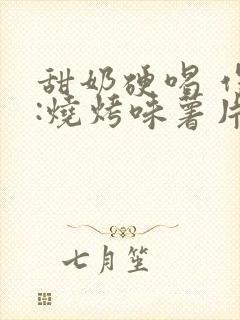 甜奶硬唱
:燒烤味薯片
七月笙